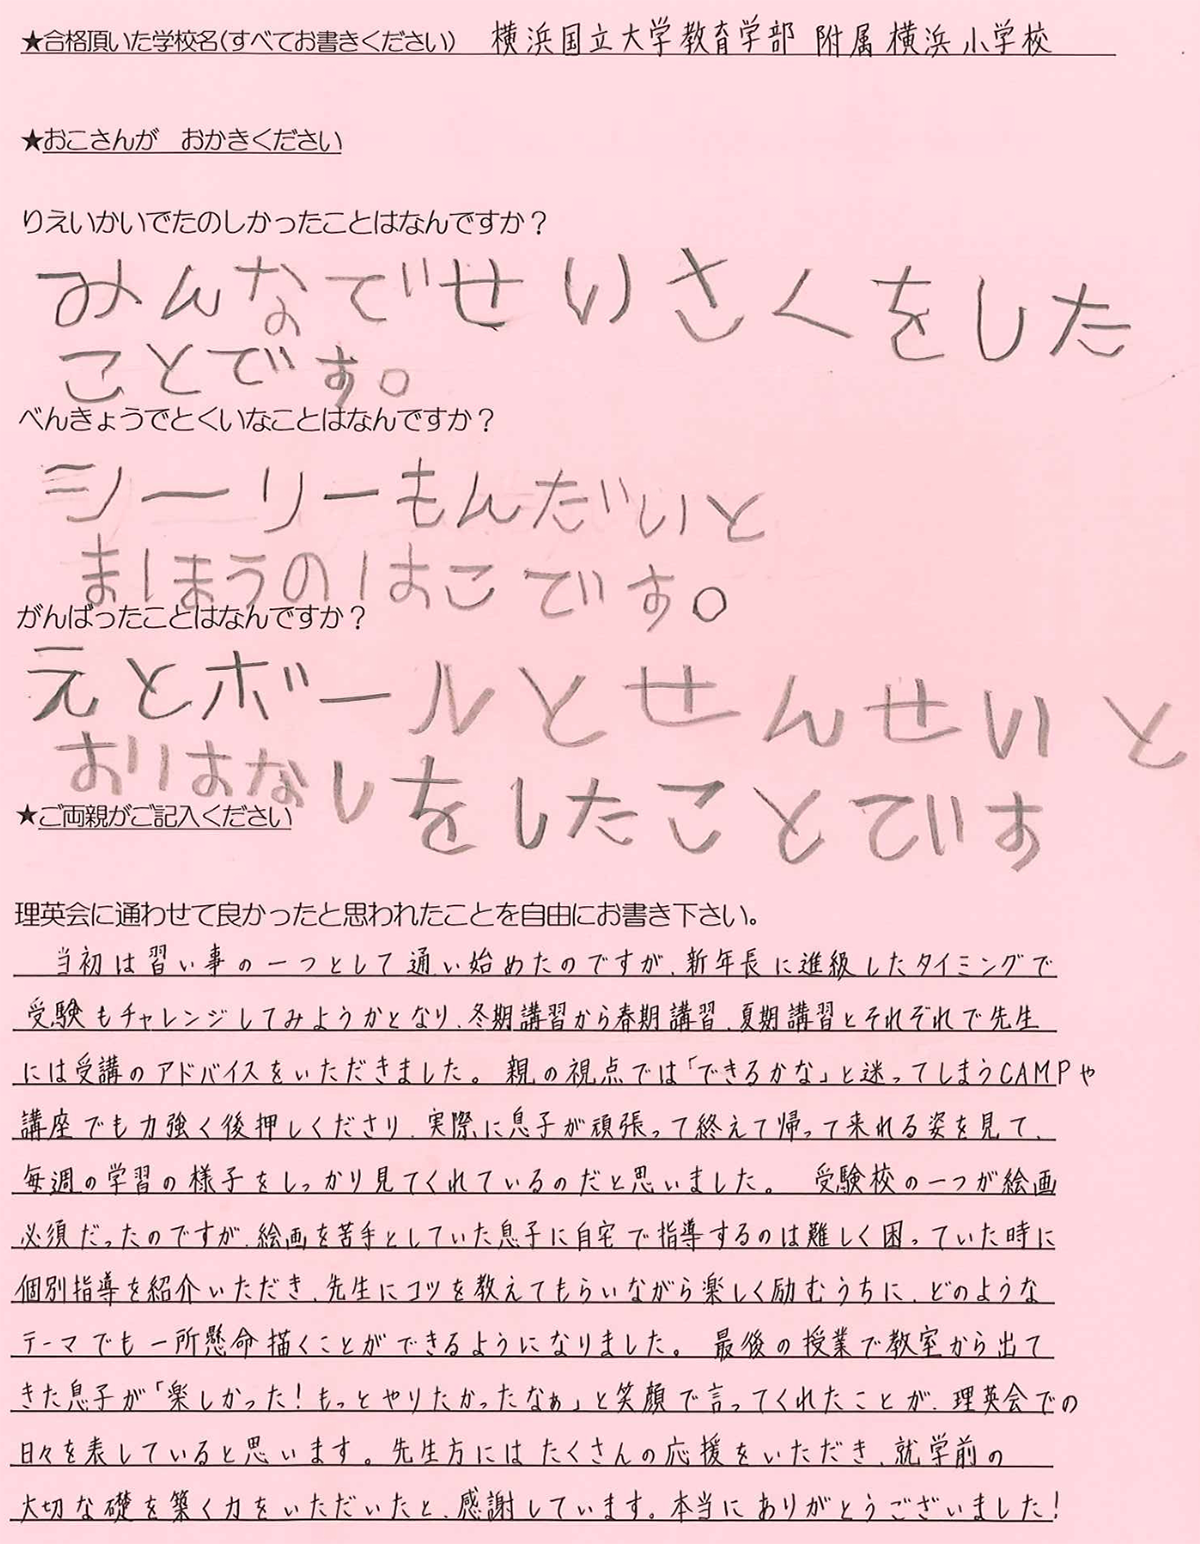 ★合格頂いた学校名(すべてお書きください) 横浜国立大学教育学部 附属 横浜 小学校
★おこさんが おかきください
りえいかいでたのしかったことはなんですか?
みんなでせいさくをした
ことです。
べんきょうでとくいなことはなんですか?
シーリーもんだいと
まほうのはこです。
がんばったことはなんですか?
えとボールとせんせいと
おはなしをしたことです
★ご両親がご記入ください
理英会に通わせて良かったと思われたことを自由にお書き下さい。
当初は習い事の一つとして通い始めたのですが、新年長に進級したタイミングで
受験もチャレンジしてみようかとなり、冬期講習から春期講習、夏期講習とそれぞれで先生
には受講のアドバイスをいただきました。親の視点では「できるかな」と迷ってしまうCAMPや
講座でも力強く後押しくださり、実際に息子が頑張って終えて帰って来れる姿を見て、
毎週の学習の様子をしっかり見てくれているのだと思いました。 受験校の一つが絵画
必須だったのですが、絵画を苦手としていた息子に自宅で指導するのは難しく困っていた時に
個別指導を紹介いただき、先生にコツを教えてもらいながら楽しく励むうちに、どのような
テーマでも一所懸命描くことができるようになりました。 最後の授業で教室から出て
きた息子が「楽しかった!もっとやりたかったなぁ」と笑顔で言ってくれたことが、理英会での
日々を表していると思います。先生方にはたくさんの応援をいただき、就学前の
大切な礎を築く力をいただいたと、感謝しています。本当にありがとうございました!